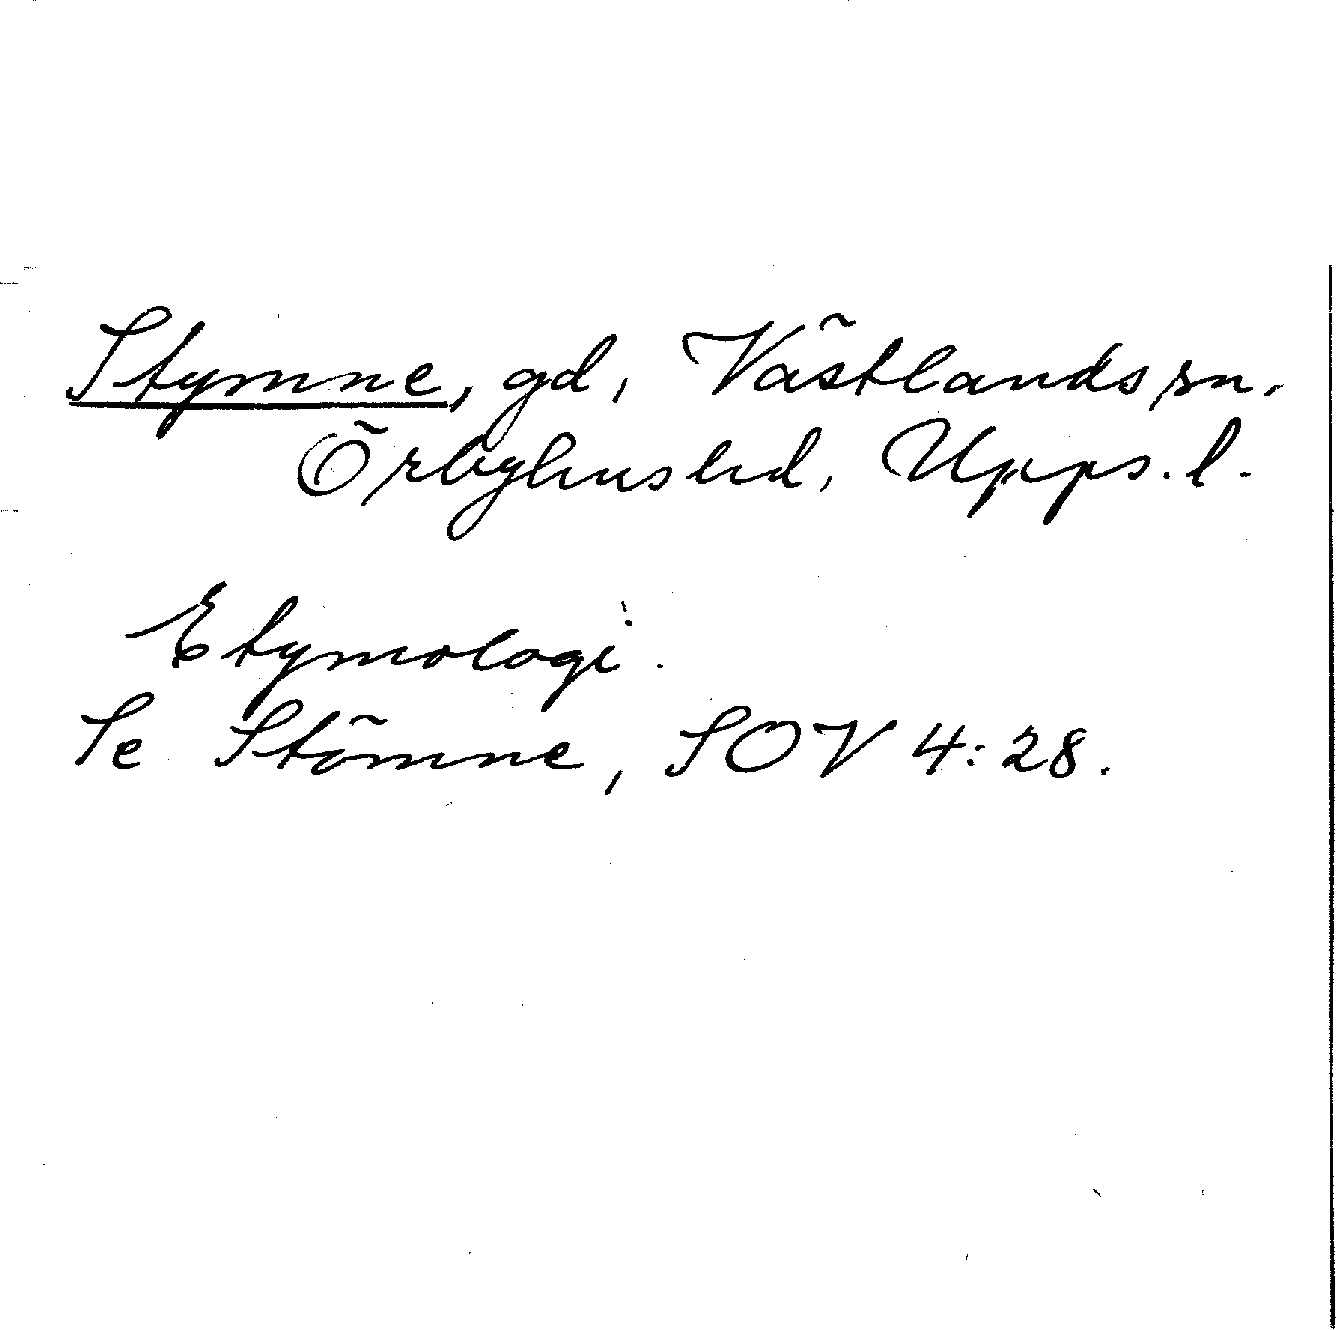 Stymne, gd, Västlands sn.
Örbyhus hd, Upps. l.
Etymologi.
Se Stömne, SOV 4:28.